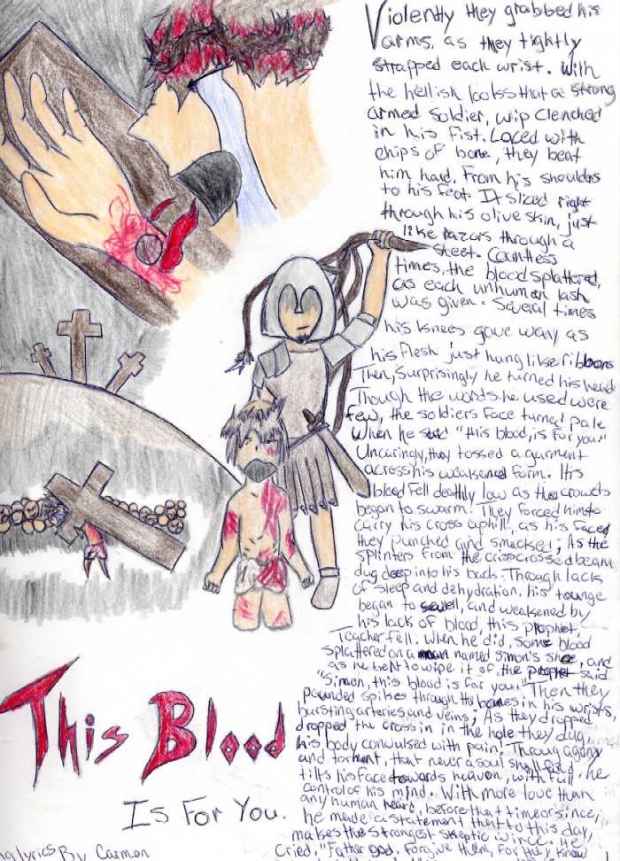 Violently they grabbed his
arms, as they tightly
strapped each wrist. With
the hellish looks that a strong
armed soldier, wip clenched
in his fist. Laced with
chips of bone, they beat
him hard. From his shoulders
to his feet. It sliced right
through his olive skin, just
like razors through a
sheet. Countless
times, the blood splattered,
as each unhuman lash
was given. Several times
his knees gave way as
his flesh just hung like ribbons
Then, surprisingly he turned his head
Though the words he used were
few, the soldiers face turned pale
when he said "this blood, is for you."
Uncaringly, they tossed a garment
across his weakened form. His
blood fell deathly low as the crowds
began to swarm. They forced him to
carry his cross uphill, as his face
they punched and smacked; As the
splinters from the crisscrossed beam
dug deep into his back. Through lack
of sleep and dehydration, his tounge
began to swell, and weakened by
his lack of blood, this prophet,
Teacher fell. When he did, some blood
splattered on a man named Simon's shoe, and
as he bent to wipe it of the prophet said
"Simon, this blood is for you." Then they
pounded spikes through the bones in his wrists,
bursting arteries and veins; As they dropped
dropped the cross in in the hole they dug,
his body convulsed with pain. Throug agony
and torment, that never a soul shall find, he
tilts his face towards heaven, with full
control of his mind. With more love than
any human heard, before that time or since,
he made a statement that to this day,
makes the strongest skeptic wince. He
Cried, "Father god, forgive them, for they know
This Blood
Is For You.
lyrics By Carmen